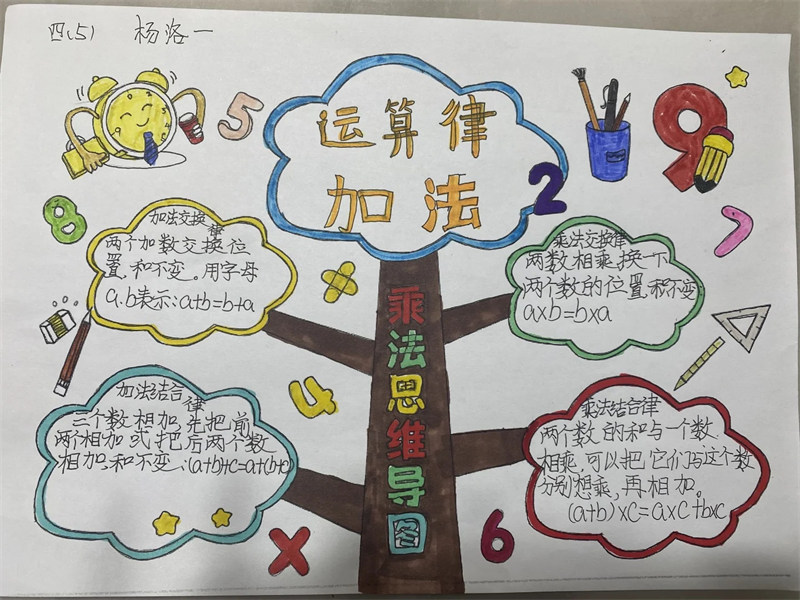 四(5) 杨洛一
运算律
加法
乘法思维导图
加法交换律
两个加数交换位
置,和不变。用字母
a.b表示:a+b=b+a
乘法交换律
两数相乘,换一下
两个数的位置,积不变
a×b=b×a
加法结合律
三个数相加,先把前
两个相加或把后两个数
相加,和不变:(a+b)+c=a+(b+c)
乘法结合律
两个数的和与一个数
相乘,可以把它们与这个数
分别想乘,再相加。
(a+b)×c=a×c+b×c
5
8
2
9
7
4
6